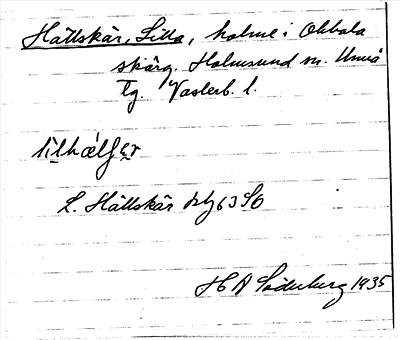 Hällskär, Lilla, holme i Obbola
skärg. Holmsund sn. Umeå
tg. Västerb. l.
lilhælfer
L. Hällskär kbl 63 SO
H A Söderberg 1935